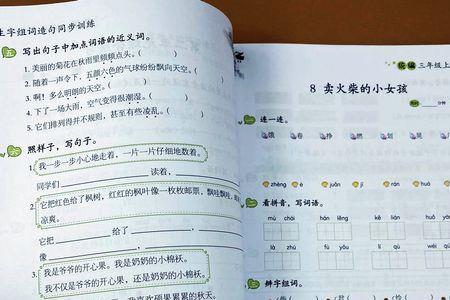 生字组词造句同步训练
五 写出句子中加点词语的近义词。
1. 美丽的菊花在秋雨里频频点头。( )
2. 随着一声令下，五颜六色的气球纷纷飘向天空。( )
3. 啊！多么明朗的天空。( )
4. 下了一场大雨，空气变得很潮湿。( )
5. 它们排列得并不规则，甚至有些凌乱。( )
照样子，写句子。
1. 我一步一步小心地走着，一片一片仔细地数着。
同学们 读着，
2. 它把红色给了枫树，红红的枫叶像一枚枚邮票，飘哇飘哇，
凉爽。
它把 给了 ，
3. 我是爷爷的开心果。我是奶奶的小棉袄。
我不仅是爷爷的开心果，还是奶奶的小棉袄。
喜欢硕果累累的秋天。
统编 三年级上
8 卖火柴的小女孩
分钟
连一连。
饿 卷 划
zhēng è juǎn jī rán huá
看拼音，写词语。
mù chái hán lěng kě lián
là zhú fù yǒu lí qù wēi
辨字组词。